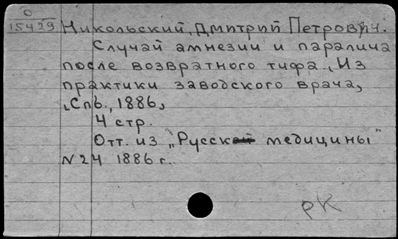 О
15429 Никольский, Дмитрий Петрович.
Случай амнезии и паралича
после возвратного тифа. Из
практики заводского врача,
Спб., 1886,
4 стр.
Отт. из "Русской медицины"
N24 1886 г.
рК